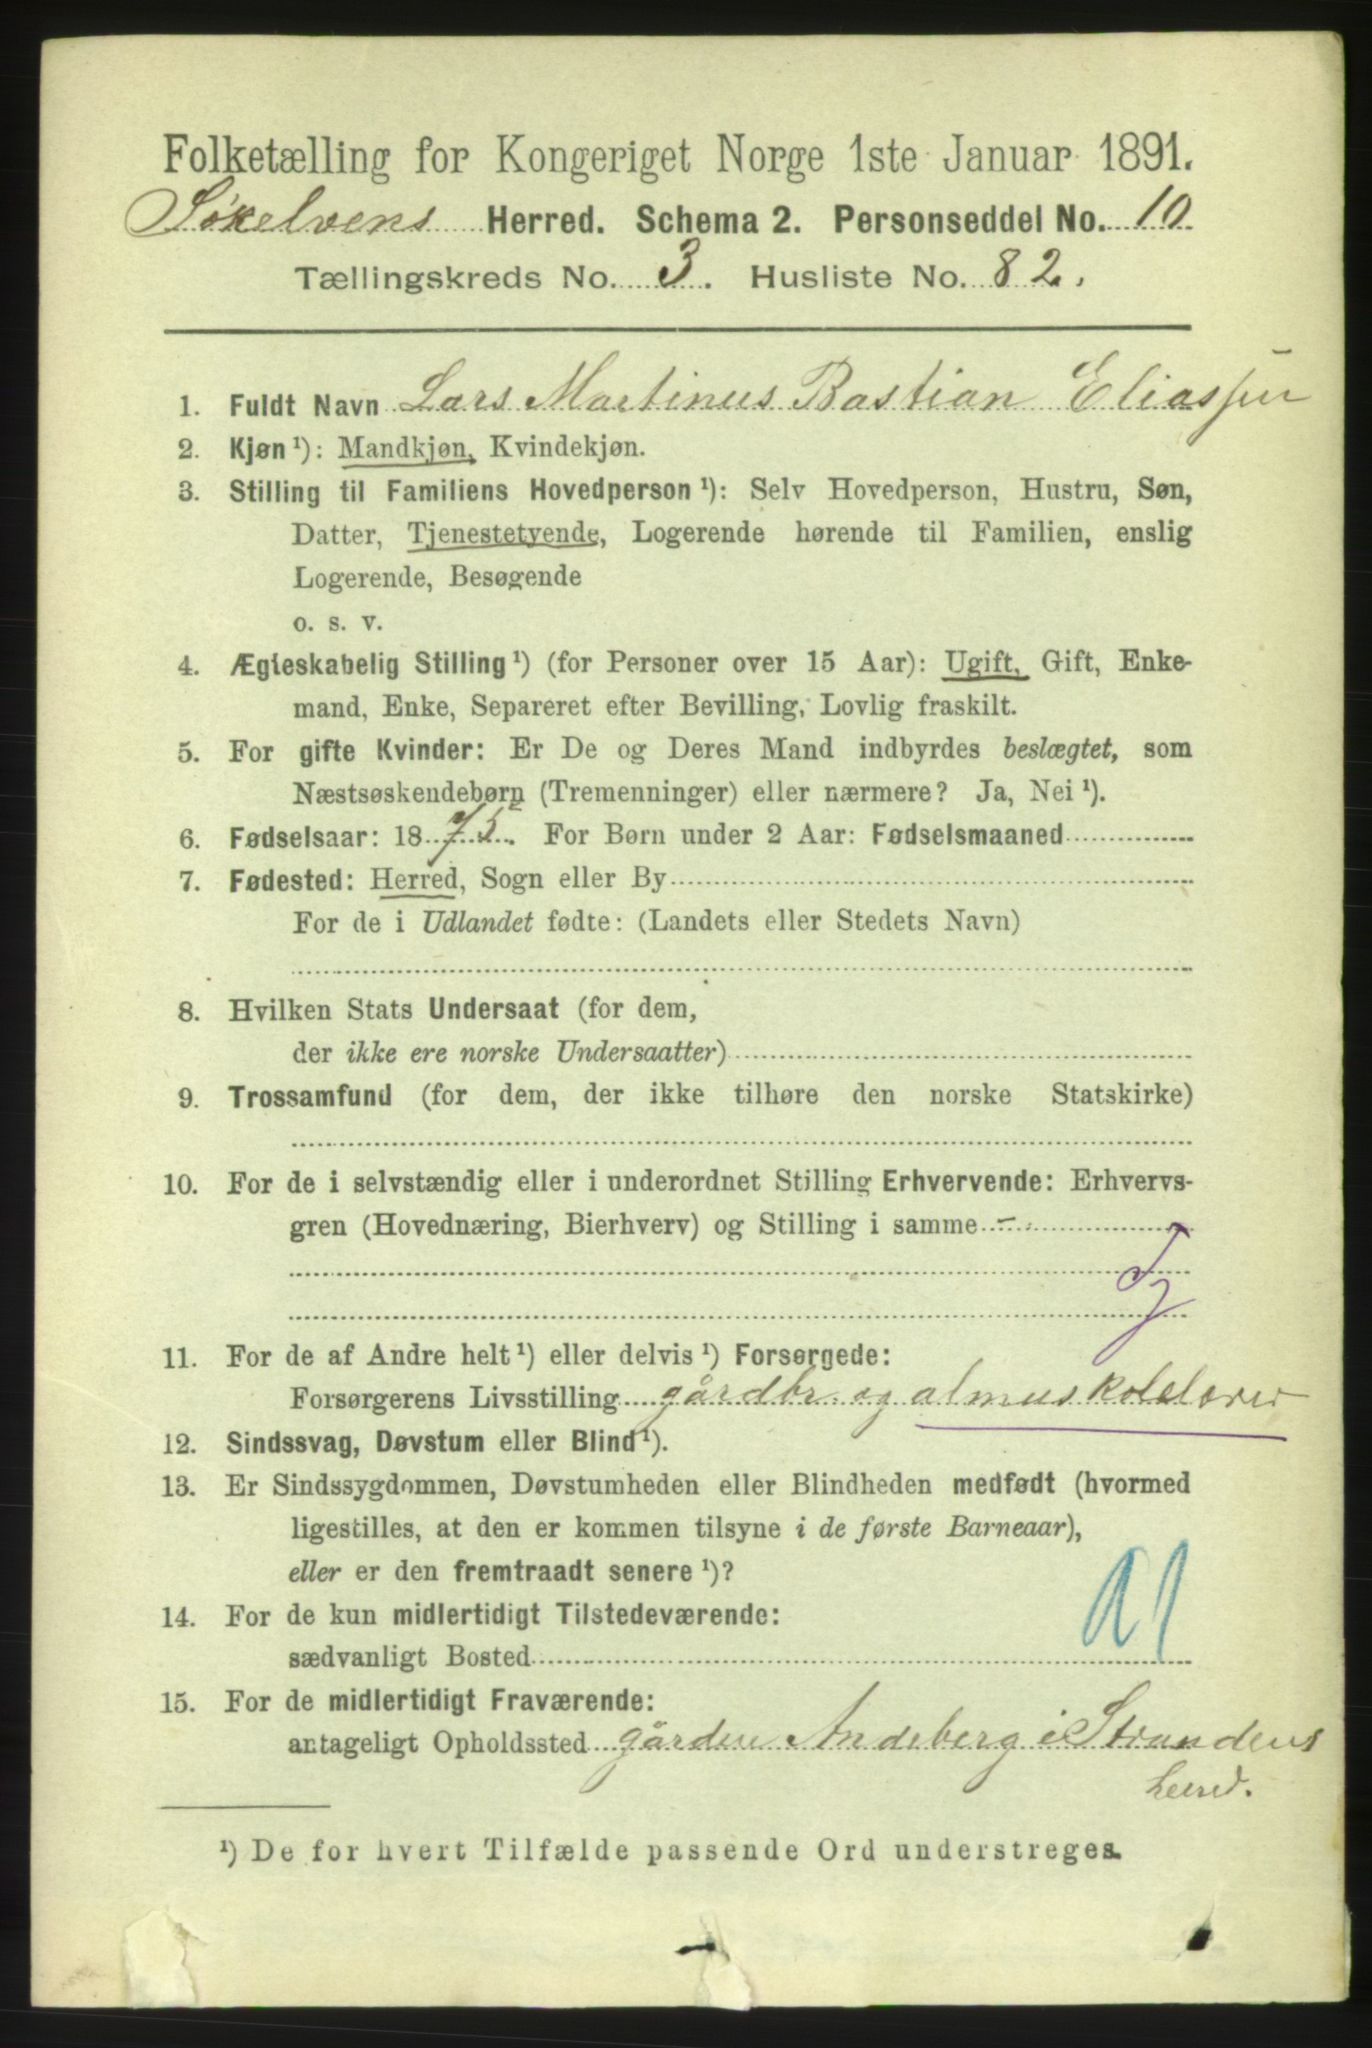 Folketælling for Kongeriget Norge 1ste Januar 1891.
Søkelvens Herred. Schema 2. Personseddel No. 10
Tællingskreds No. 3. Husliste No. 82.
1. Fuldt Navn Lars Martinus Bastian Eliassen
2. Kjøn ¹): Mandkjøn, Kvindekjøn.
3. Stilling til Familiens Hovedperson ¹): Selv Hovedperson, Hustru, Søn,
Datter, Tjenestetyende, Logerende hørende til Familien, enslig
Logerende, Besøgende
o. s. v.
4. Ægteskabelig Stilling ¹) (for Personer over 15 Aar): Ugift, Gift, Enke-
mand, Enke, Separeret efter Bevilling, Lovlig fraskilt.
5. For gifte Kvinder: Er De og Deres Mand indbyrdes beslægtet, som
Næstsøskendebørn (Tremenninger) eller nærmere? Ja, Nei ¹).
6. Fødselsaar: 1875. For Børn under 2 Aar: Fødselsmaaned
7. Fødested: Herred, Sogn eller By
For de i Udlandet fødte: (Landets eller Stedets Navn)
8. Hvilken Stats Undersaat (for dem,
der ikke ere norske Undersaatter)
9. Trossamfund (for dem, der ikke tilhøre den norske Statskirke)
10. For de i selvstændig eller i underordnet Stilling Erhvervende: Erhvervs-
gren (Hovednæring, Bierhverv) og Stilling i samme -
11. For de af Andre helt ¹) eller delvis ¹) Forsørgede:
Forsørgerens Livsstilling gårdbr. og almuskolelærer
12. Sindssvag, Døvstum eller Blind ¹).
13. Er Sindssygdommen, Døvstumheden eller Blindheden medfødt (hvormed
ligestilles, at den er kommen tilsyne i de første Barneaar),
eller er den fremtraadt senere ¹)?
14. For de kun midlertidigt Tilstedeværende:
sædvanligt Bosted
15. For de midlertidigt Fraværende:
antageligt Opholdssted gården Andeberg i Strandens
herred.
¹) De for hvert Tilfælde passende Ord understreges.